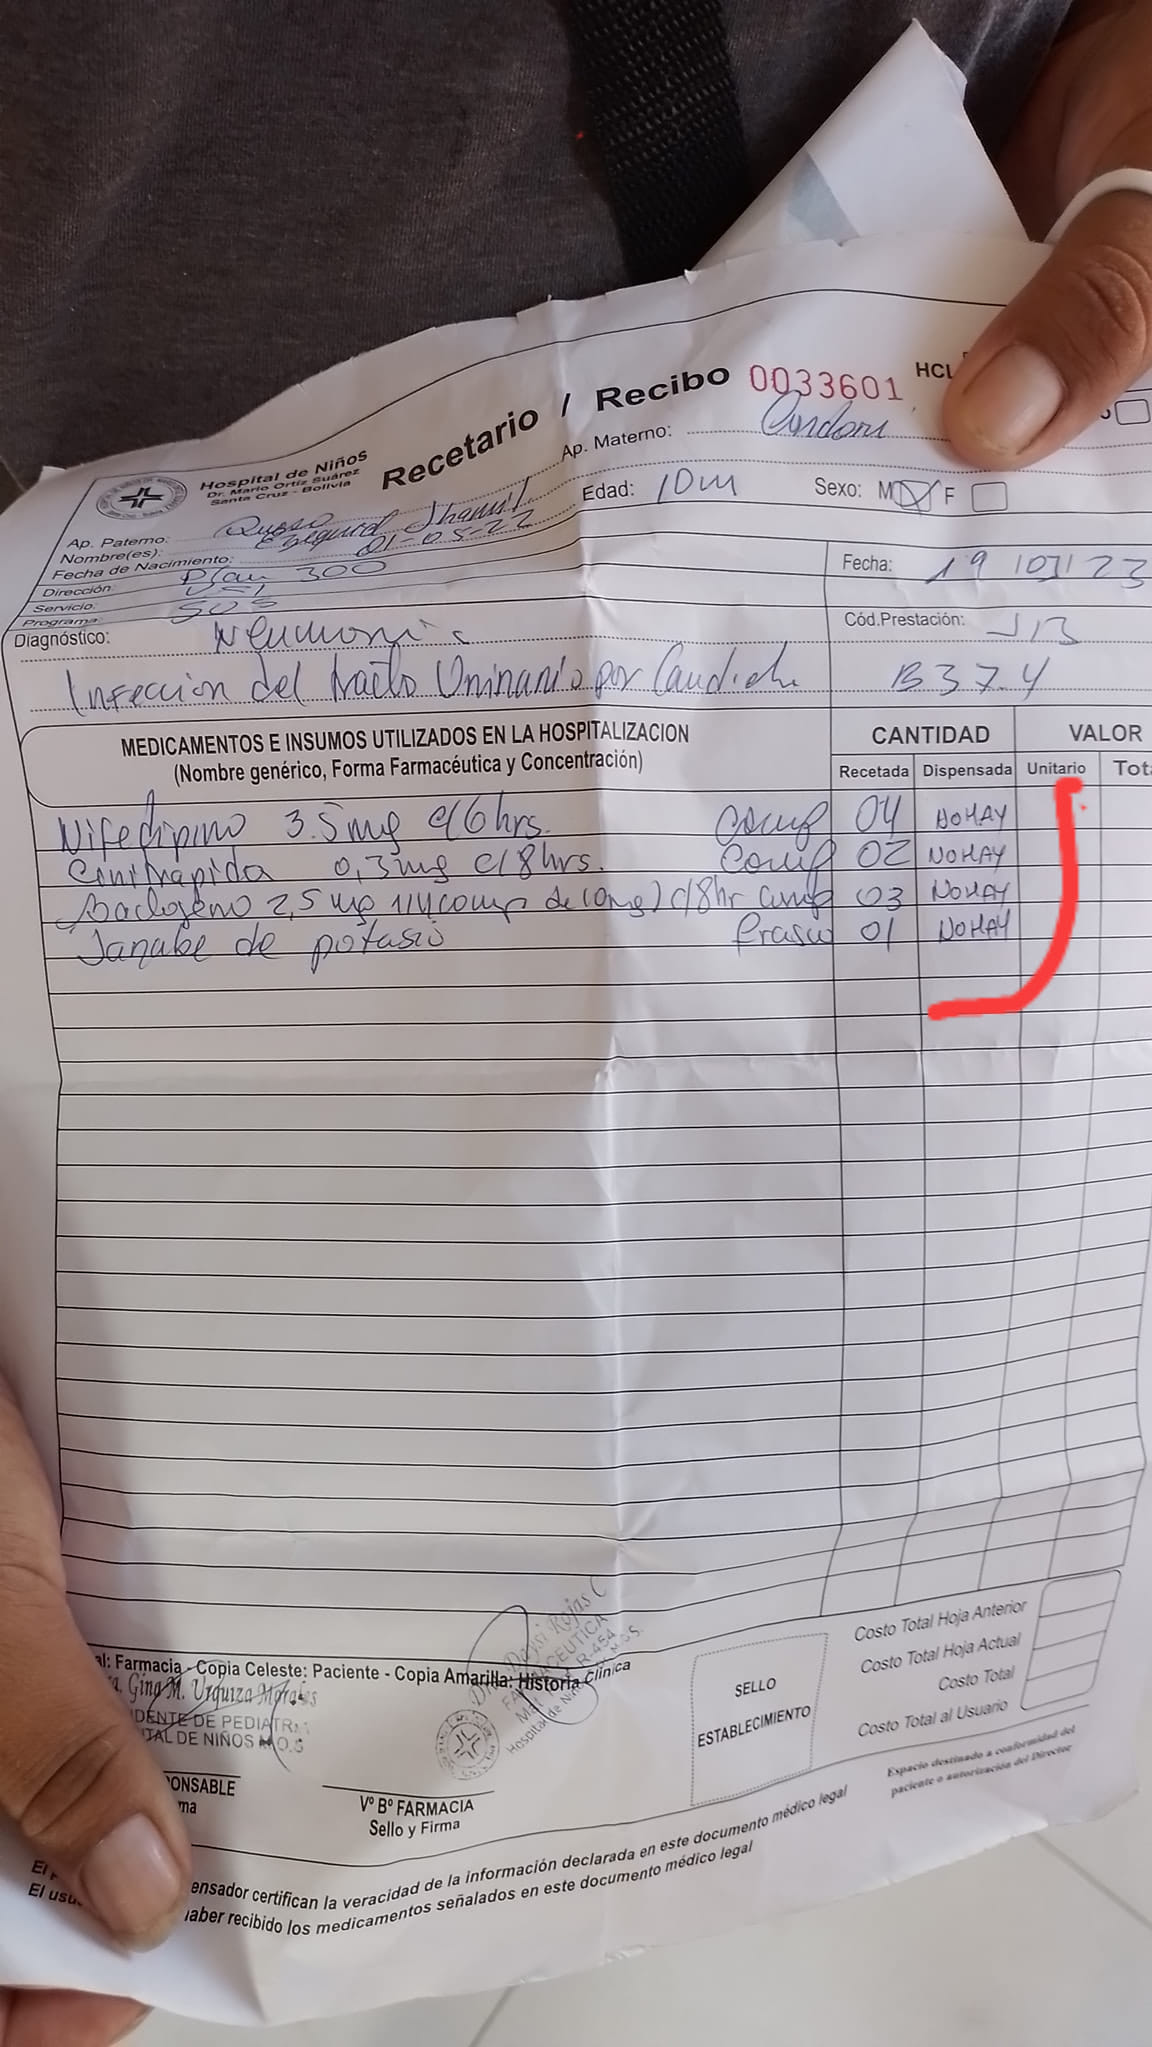 Hospital de Niños
Dr. Mario Ortiz Suárez
Santa Cruz - Bolivia
Recetario / Recibo 0033601
HCL
Ap. Paterno:
Ap. Materno:
Nombre(es):
Edad: 10m
Sexo: M F
Fecha de Nacimiento: 01-05-22
Dirección: Plan 300
Fecha: 19 03 23
Servicio:
Programa:
Cód.Prestación:
Diagnóstico: Neumonia
Infeccion del tracto Uninario por
B37.4
MEDICAMENTOS E INSUMOS UTILIZADOS EN LA HOSPITALIZACION
(Nombre genérico, Forma Farmacéutica y Concentración)
CANTIDAD
VALOR
Recetada Dispensada Unitario Tot
Nifedipino 3.5mg c/6hrs. comp 04 NO HAY
0,3mg c/8hrs. comp 02 NO HAY
2,5 mg 1/4 comp de 10mg) c/8hr comp 03 NO HAY
Jarabe de potasio frasco 01 NO HAY
al: Farmacia - Copia Celeste: Paciente - Copia Amarilla: Historia Clínica
Gina M. Urquiza Morales
DENTE DE PEDIATR
TAL DE NIÑOS M.O.S
Rojas C
R-454
Hospital de Niños
PONSABLE
ma
Vº Bº FARMACIA
Sello y Firma
SELLO
ESTABLECIMIENTO
Costo Total Hoja Anterior
Costo Total Hoja Actual
Costo Total
Costo Total al Usuario
Espacio destinado a conformidad del
paciente o autorización del Director
El
ensador certifican la veracidad de la información declarada en este documento médico legal
El usu
aber recibido los medicamentos señalados en este documento médico legal